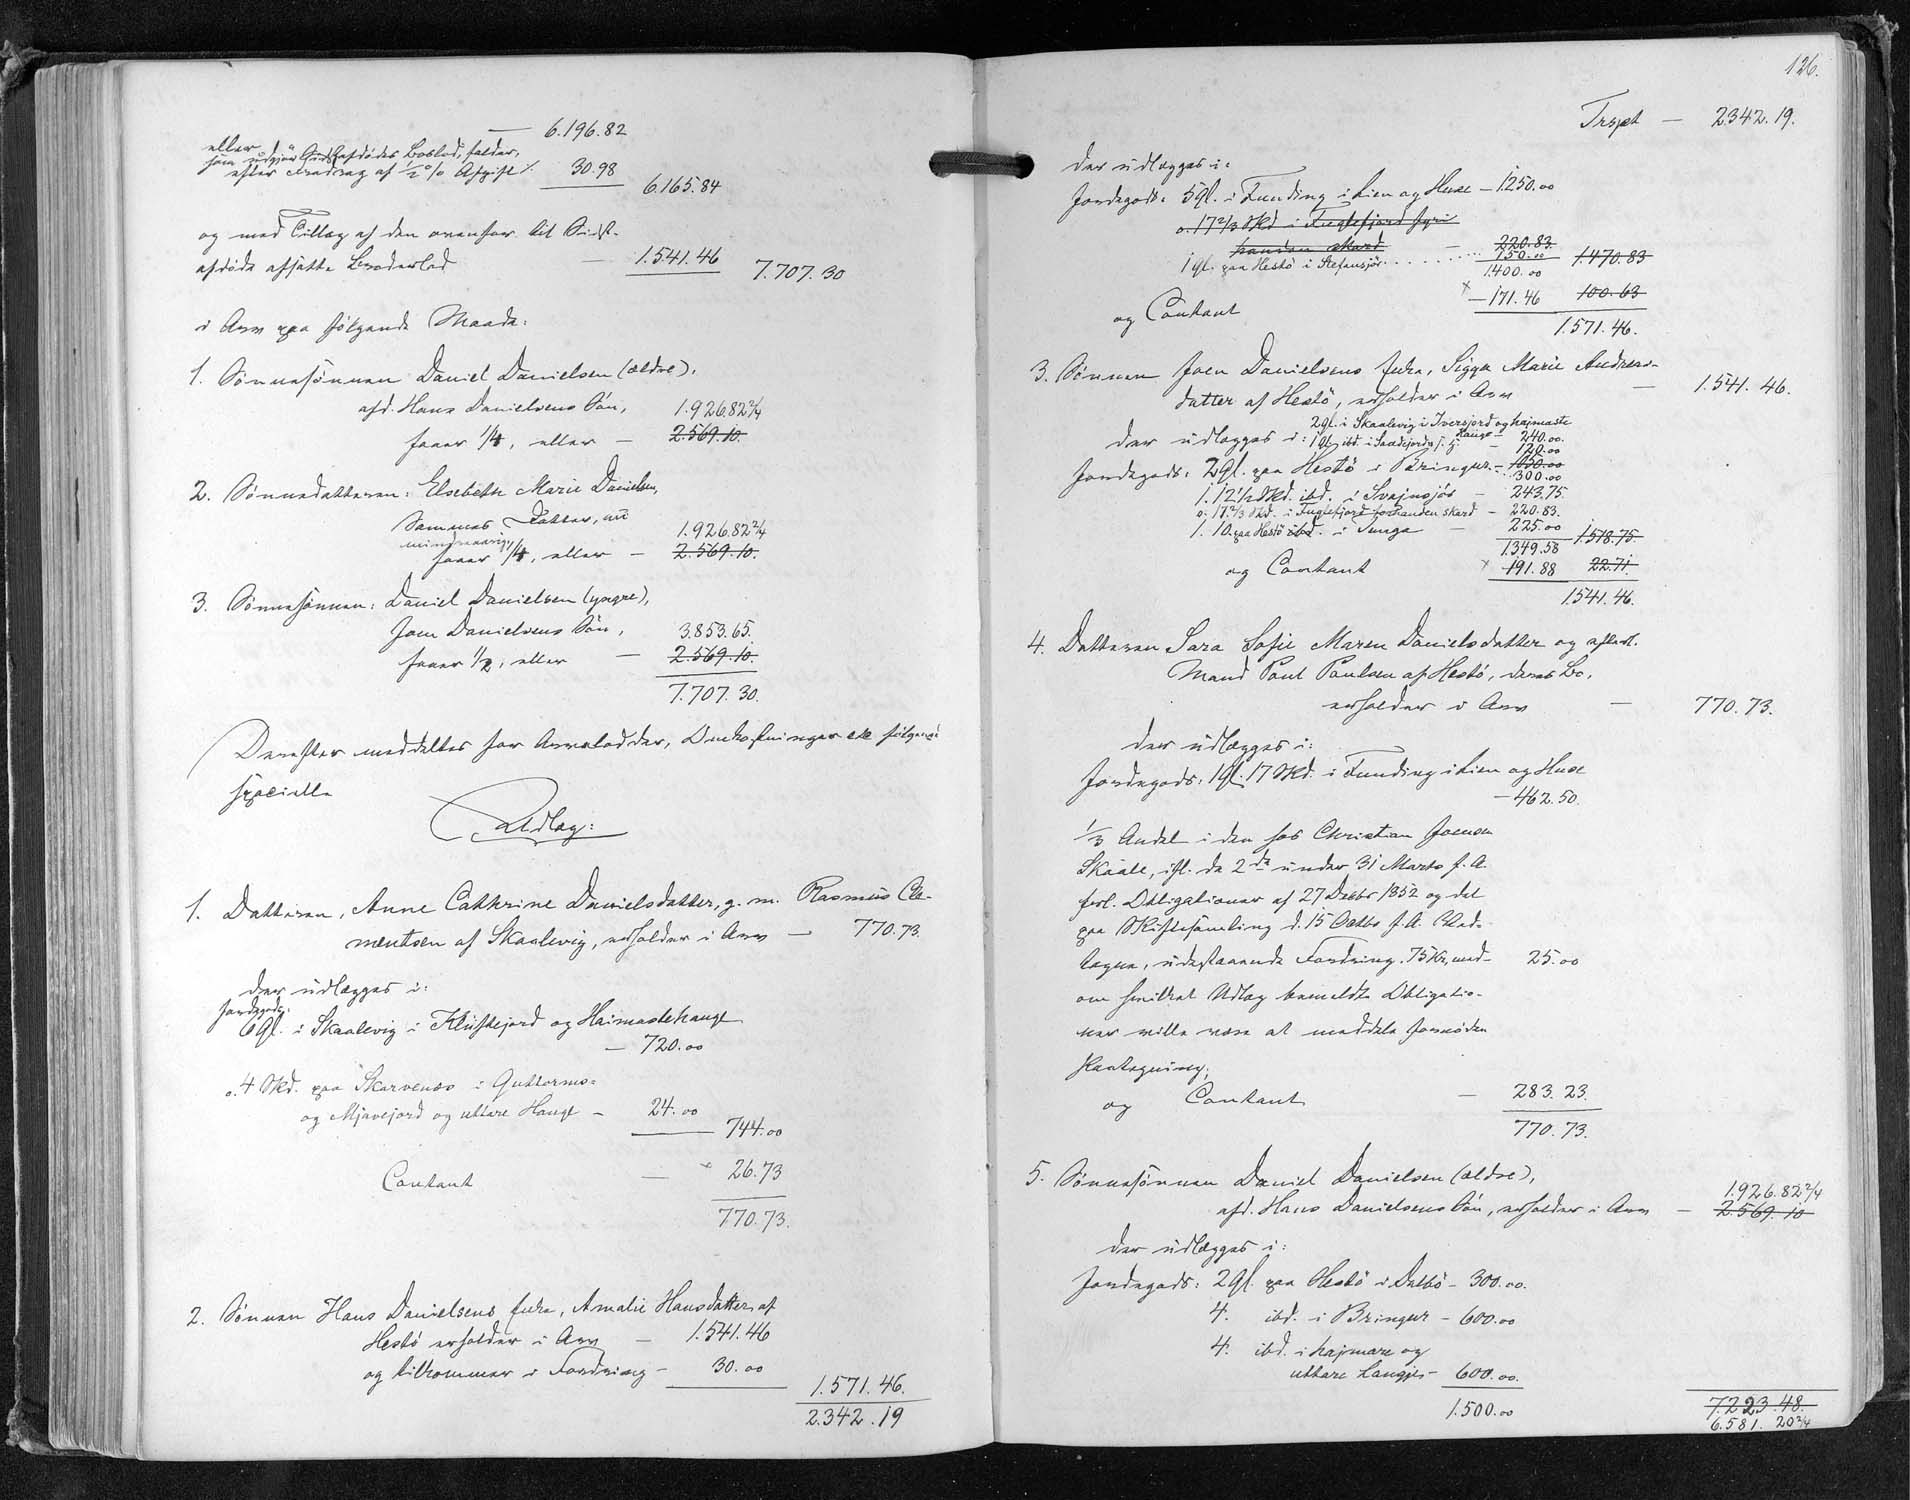 6.196.82
eller
som udgjør Sidstafdødes Boslod, falder,
efter Fradrag af ½ % Afgift 30.98
6.165.84
og med Tillæg af den ovenfor til Sidst-
afdøde afsatte Broderlod — 1.541.46
7.707.30
i Arv paa følgende Maade:
1. Sønnesønnen Daniel Danielsen (ældre),
afd. Hans Danielsens Søn, 1.926.82 2/4
faaer 1/4, eller — 2.569.10.
2. Sønnedatteren: Elsebeth Marie Danielsen,
Sammes Datter, nu
mindreaarig, 1.926.82 2/4
faaer 1/4, eller — 2.569.10.
3. Sønnesønnen: Daniel Danielsen (yngre),
Joen Danielsens Søn, 3.853.65.
faaer 1/2, eller — 2.569.10.
7.707.30.
Derefter meddeltes for Arvelodder, Omkostninger etc følgende
specielle
Udlæg:
1. Datteren, Anne Cathrine Danielsdatter, g. m. Rasmus Cle-
mentsen af Skaalevig, erholder i Arv — 770.73.
der udlægges i:
Jordegods:
6 Gl. i Skaalevig i Kluftejord og Haimastehauge
— 720.00
o. 4 Skd. paa Skarvenes i Guttorms-
og Mjavejord og uttare Hauge — 24.00
744.00
Contant — × 26.73
770.73.
2. Sønnen Hans Danielsens Enke, Amalie Hansdatter, af
Hestø erholder i Arv — 1.541.46
og tilkommer i Fordring — 30.00
1.571.46.
2.342.19
126.
Trspt — 2342.19.
der udlægges i:
Jordegods: 5 Gl. i Funding i Lien og Huse — 1250.00
o. 17 2/3 Skd i Fuglefjord fyri
handan Skard — 220.83.
1 Gl. paa Hestø i Stefansjør . . . . . . . 150.00 1.470.83
1.400.00
og Contant × — 171.46 100.63
1.571.46.
3. Sønnen Joen Danielsens Enke, Sigga Marie Andreas-
datter af Hestø, erholder i Arv — 1.541.46.
2 Gl. i Skaalevig i Iversjord og hajmaste
Hauge — 240.00.
der udlægges i: 1 Gl. ibd. i Sandejords — 120.00
Jordegods: 2 Gl. paa Hestø i Bringur. — 1050.00
300.00
1. 12 1/2 Skd. ibd. i Svajnsjös — 243.75.
o. 17 2/3 Skd. i Fuglefjord forhanden skard — 220.83.
1. 10. paa Hestø ibd. i Tunga — 225.00 1.518.75.
1349.58
og Contant × 191.88 22.71.
1541.46.
4. Datteren Sara Sofie Maren Danielsdatter og efterl.
Mand Poul Poulsen af Hestø, deres Bo,
erholder i Arv — 770.73.
der udlægges i:
Jordegods: 1 Gl. 17 Skd. i Funding i Lien og Huse
— 462.50.
1/3 Andel i den hos Christian Joensen
Skaale, ifl. de 2de under 31 Marts f. A.
forl. Obligationer af 27 Decbr 1852 og det
paa Skiftesamling d. 15 Octbr f. A. Ved-
tagne, udestaaende Fordring. 75 Kr, med- 25.00
om hvilket Udlæg bemeldte Obligatio-
ner ville være at meddele fornøden
Paategning;
og Contant — 283.23.
770.73.
5. Sønnesønnen Daniel Danielsen (ældre),
afd. Hans Danielsens Søn, erholder i Arv — 1.926.82 2/4
2.569.10
der udlægges i:
Jordegods: 2 Gl. paa Hestø i Dalbø — 300.00.
4. ibd. i Bringur — 600.00
4. ibd. i hajmare og
uttare Laugjer — 600.00.
1.500.00
7.223.48.
6.581.20 2/4